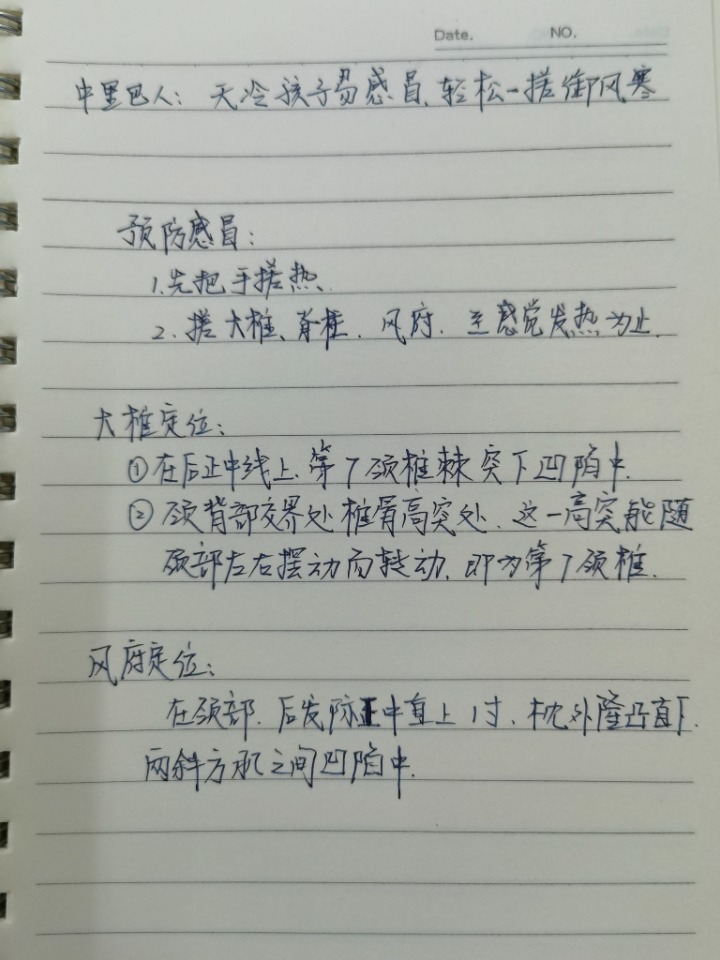 Date.
NO.
中里巴人：天冷孩子易感冒、轻松一搓御风寒
预防感冒：
1.先把手搓热、
2.搓大椎、脊椎、风府、至感觉发热为止.
大椎定位：
①在后正中线上、第7颈椎棘突下凹陷中.
②颈背部交界处椎骨高突处、这一高突能随
颈部左右摆动而转动、即为第7颈椎.
风府定位：
在颈部、后发际正中直上1寸、枕外隆凸直下、
两斜方肌之间凹陷中.